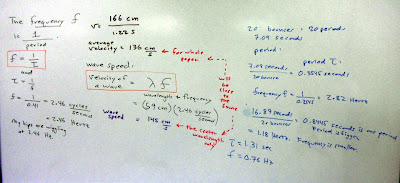 The frequency f
is 1
period
f = 1/τ
and
τ = 1/f
f = 1/0.41 = 2.46 cycles/second
= 2.46 Hertz
My hips are wiggling
at 2.46 Hz.
v = 166 cm
1.22 s
average
velocity = 136 cm/s ← for whole
paper
wave speed:
velocity of
a wave = λ f
wavelength × frequency
= (59 cm)(2.46 cycles/second)
wave
speed = 145 cm/s ← (the center
wavelength
only)
will
be
close
to
the
same
20 bounces = 20 periods
7.09 seconds
period:
period τ:
7.09 seconds
20 bounces = 0.3545 seconds
frequency f = 1/0.3545 = 2.82 Hertz
16.89 seconds
20 bounces = 0.8445 seconds is one period
Period is bigger
= 1.18 Hertz. Frequency is smaller.
τ = 1.31 sec
f = 0.76 Hz